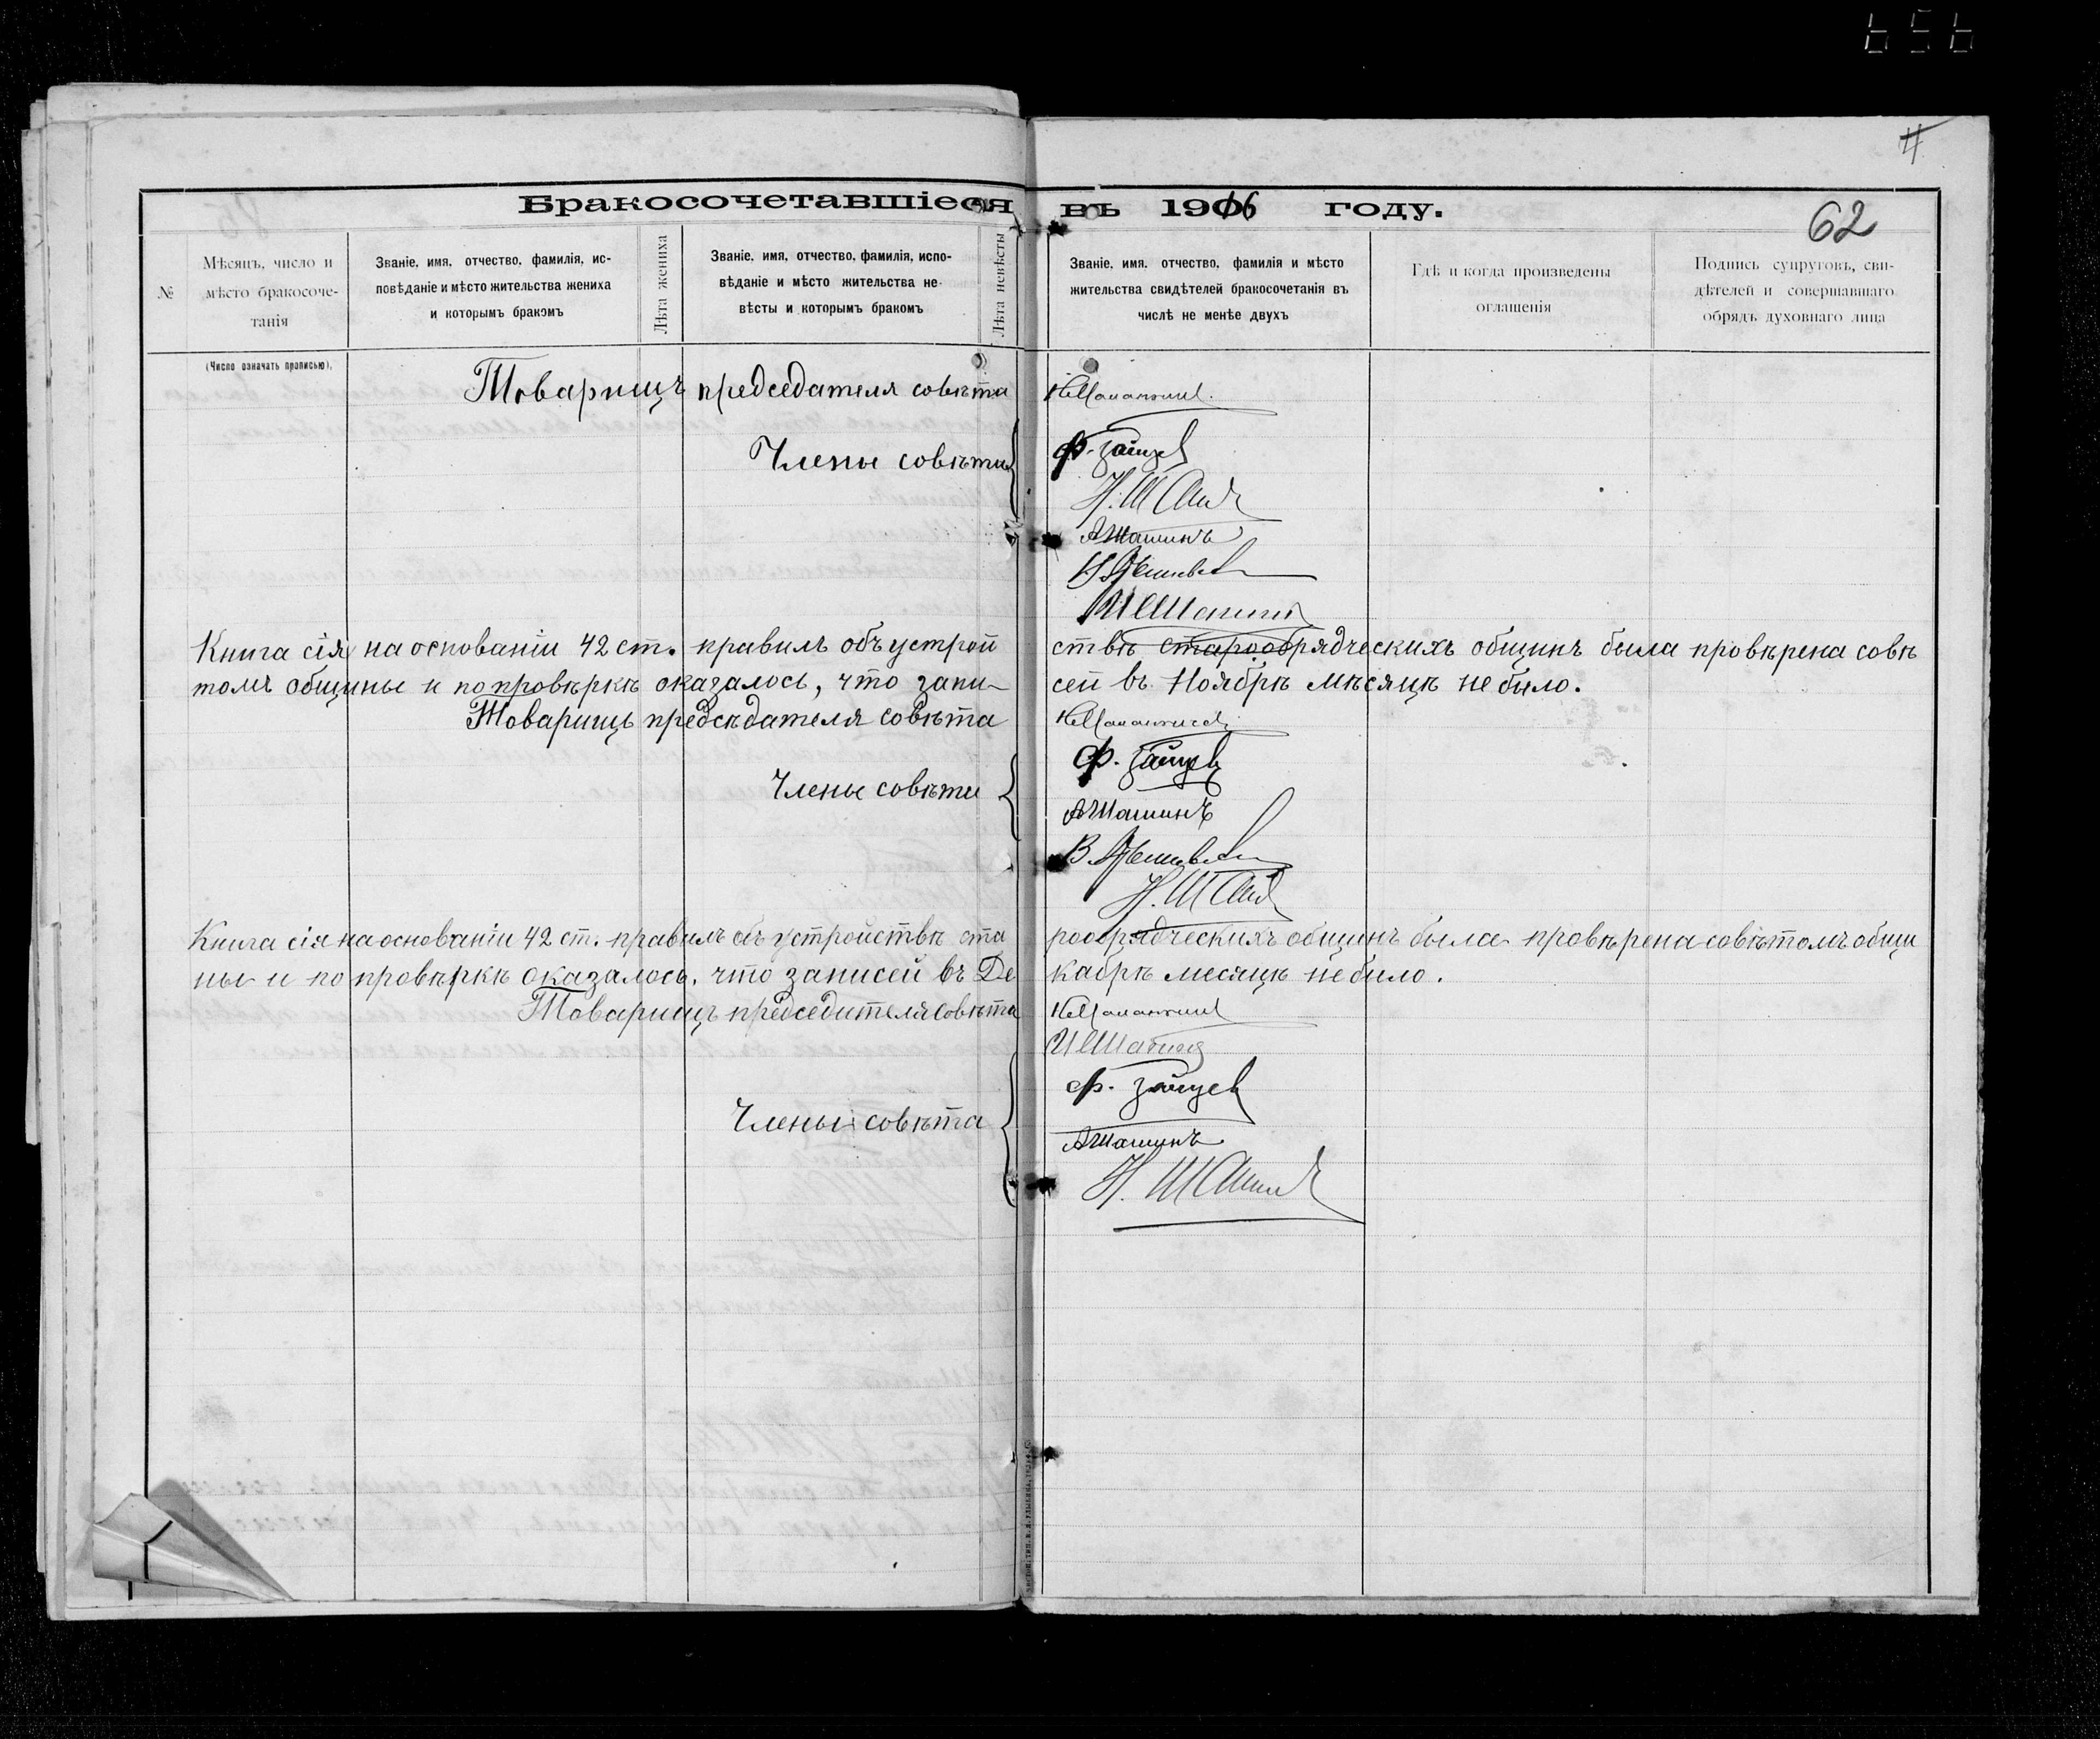 62
Бракосочетавшіеся въ 1916 году.
№
Мѣсяцъ, число и
мѣсто бракосоче-
танія
(Число означать прописью).
Званіе, имя, отчество, фамилія, ис-
повѣданіе и мѣсто жительства жениха
и которымъ бракомъ
Лѣта жениха
Званіе, имя, отчество, фамилія, испо-
вѣданіе и мѣсто жительства не-
вѣсты и которымъ бракомъ
Лѣта невѣсты
Званіе, имя, отчество, фамилія и мѣсто
жительства свидѣтелей бракосочетанія въ
числѣ не менѣе двухъ
Гдѣ и когда произведены
оглашенія
Подпись супруговъ, сви-
дѣтелей и совершавшаго
обрядъ духовнаго лица
Товарищъ председателя совѣта
Члены совѣта
Ф. Зайцев
А Машинъ
Книга сія на основаніи 42 ст. правилъ объ устрой
ствѣ старообрядческихъ общинъ была провѣрена совѣ
томъ общины и по провѣркѣ оказалось, что запи-
сей въ Ноябрѣ мѣсяцѣ не было.
Товарищъ предсѣдателя совѣта
Члены совѣта
Ф. Зайцев
А Машинъ
Книга сія на основаніи 42 ст. правилъ объ устройствѣ ста
рообрядческихъ общинъ была провѣрена совѣтомъ общи
ны и по провѣркѣ оказалось, что записей въ Де
кабрѣ месяцѣ не было.
Товарищъ председателя совѣта
Члены совѣта
Ф. Зайцев
А Машинъ